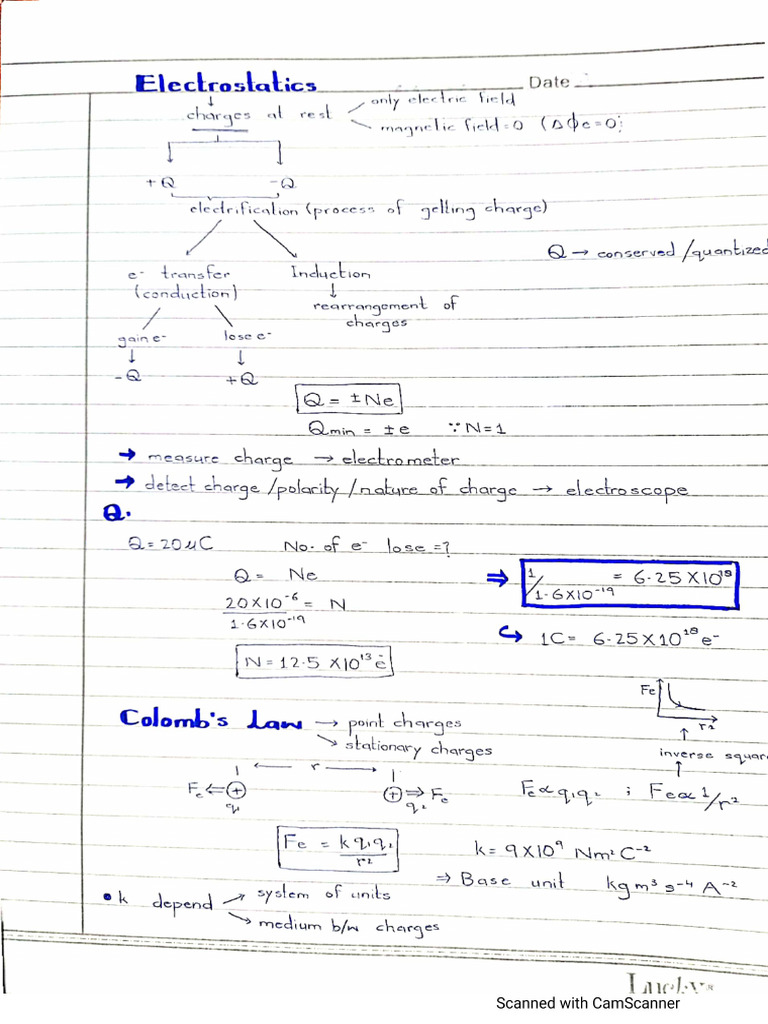 Electrostatics
Date
↓
charges at rest
only electric field
magnetic field = 0 (ΔΦe=0)
+Q -Q
electrification (process of getting charge)
Q → conserved/quantized
e- transfer
(conduction)
Induction
↓
rearrangement of
charges
gain e- lose e-
↓ ↓
-Q +Q
Q = ±Ne
Qmin = ±e ∵ N=1
→ measure charge → electrometer
→ detect charge/polarity/nature of charge → electroscope
Q.
Q=20μC No. of e- lose=?
Q= Ne
20×10⁻⁶ = N
1.6×10⁻¹⁹
N=12.5 ×10¹³ e-
⇒ 1/1.6×10⁻¹⁹ = 6.25×10¹⁸
↪ 1C= 6.25×10¹⁸e-
Fe
r²
↑
inverse square
↑
Colomb's Law → point charges
↘ stationary charges
← r →
Fe ⇐ ⊕ ⊕ ⇒ Fe
q₁ q₂
Fe∝q₁q₂ ; Fe∝1/r²
Fe = kq₁q₂
r²
k= 9×10⁹ Nm²C⁻²
⇒ Base unit kgm³s⁻⁴A⁻²
• k depend
system of units
medium b/w charges
Scanned with CamScanner